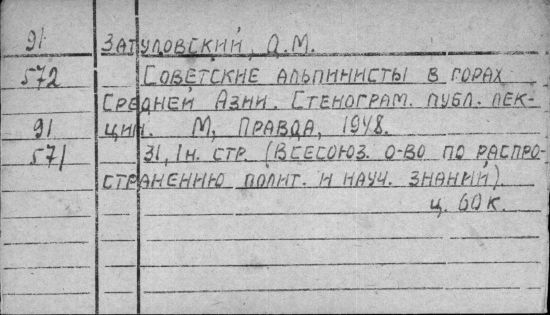 91 ЗАТУЛОВСКИЙ, Д.М.
572 СОВЕТСКИЕ АЛЬПИНИСТЫ В ГОРАХ
СРЕДНЕЙ АЗИИ. СТЕНОГРАМ. ПУБЛ. ЛЕК-
91 ЦИИ. М, ПРАВДА, 1948.
571 31, 1н. СТР. (ВСЕСОЮЗ. О-ВО ПО РАСПРО-
СТРАНЕНИЮ ПОЛИТ. И НАУЧ. ЗНАНИЙ).
Ц. 60 К.